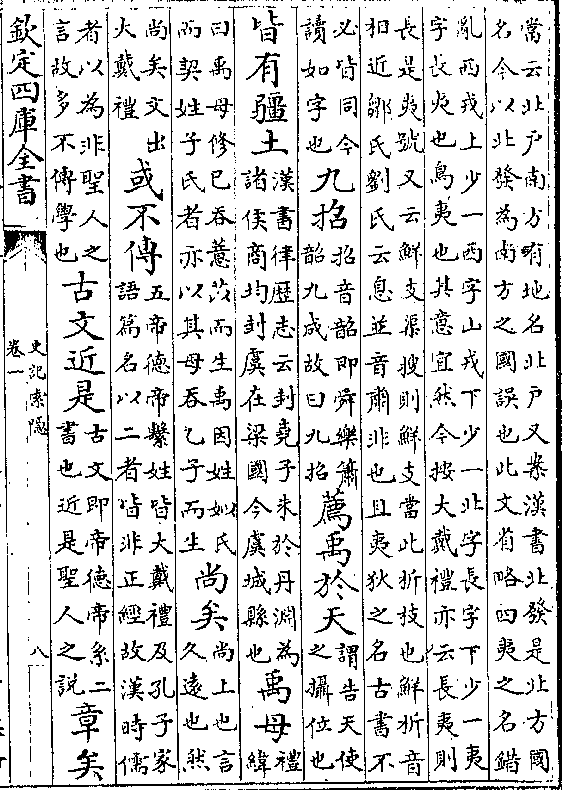 當云北户南方有地名北户又案漢書北發是北方國
名今以北發為南方之國誤也此文省略四夷之名錯
亂西戎上少一西字山戎下少一北字長字下少一夷
字長夷也鳥夷也其意宜然今按大戴禮亦云長夷則
長是夷號又云鮮支渠搜則鮮支當此析枝也鮮析音
相近鄒氏劉氏云息並音肅非也且夷狄之名古書不
必皆同今
讀如字也
九招
招音韶即舜樂簫
韶九成故曰九招
薦禹於天
謂告天使
之攝位也
皆有疆土
漢書律歴志云封堯子朱於丹淵為
諸侯商均封虞在梁國今虞城縣也
禹母
禮
緯
曰禹母修已吞薏苡而生禹因姓姒氏
而契姓子氏者亦以其母吞乙子而生
尚矣
尚上也言
久遠也然
尚矣文出
大戴禮
或不傳
五帝德帝繫姓皆大戴禮及孔子家
語篇名以二者皆非正經故漢時儒
者以為非聖人之
言故多不傳學也
古文近是
古文即帝德帝系二
書也近是聖人之説
章矣
欽定四庫全書
史記索隱
卷一
八